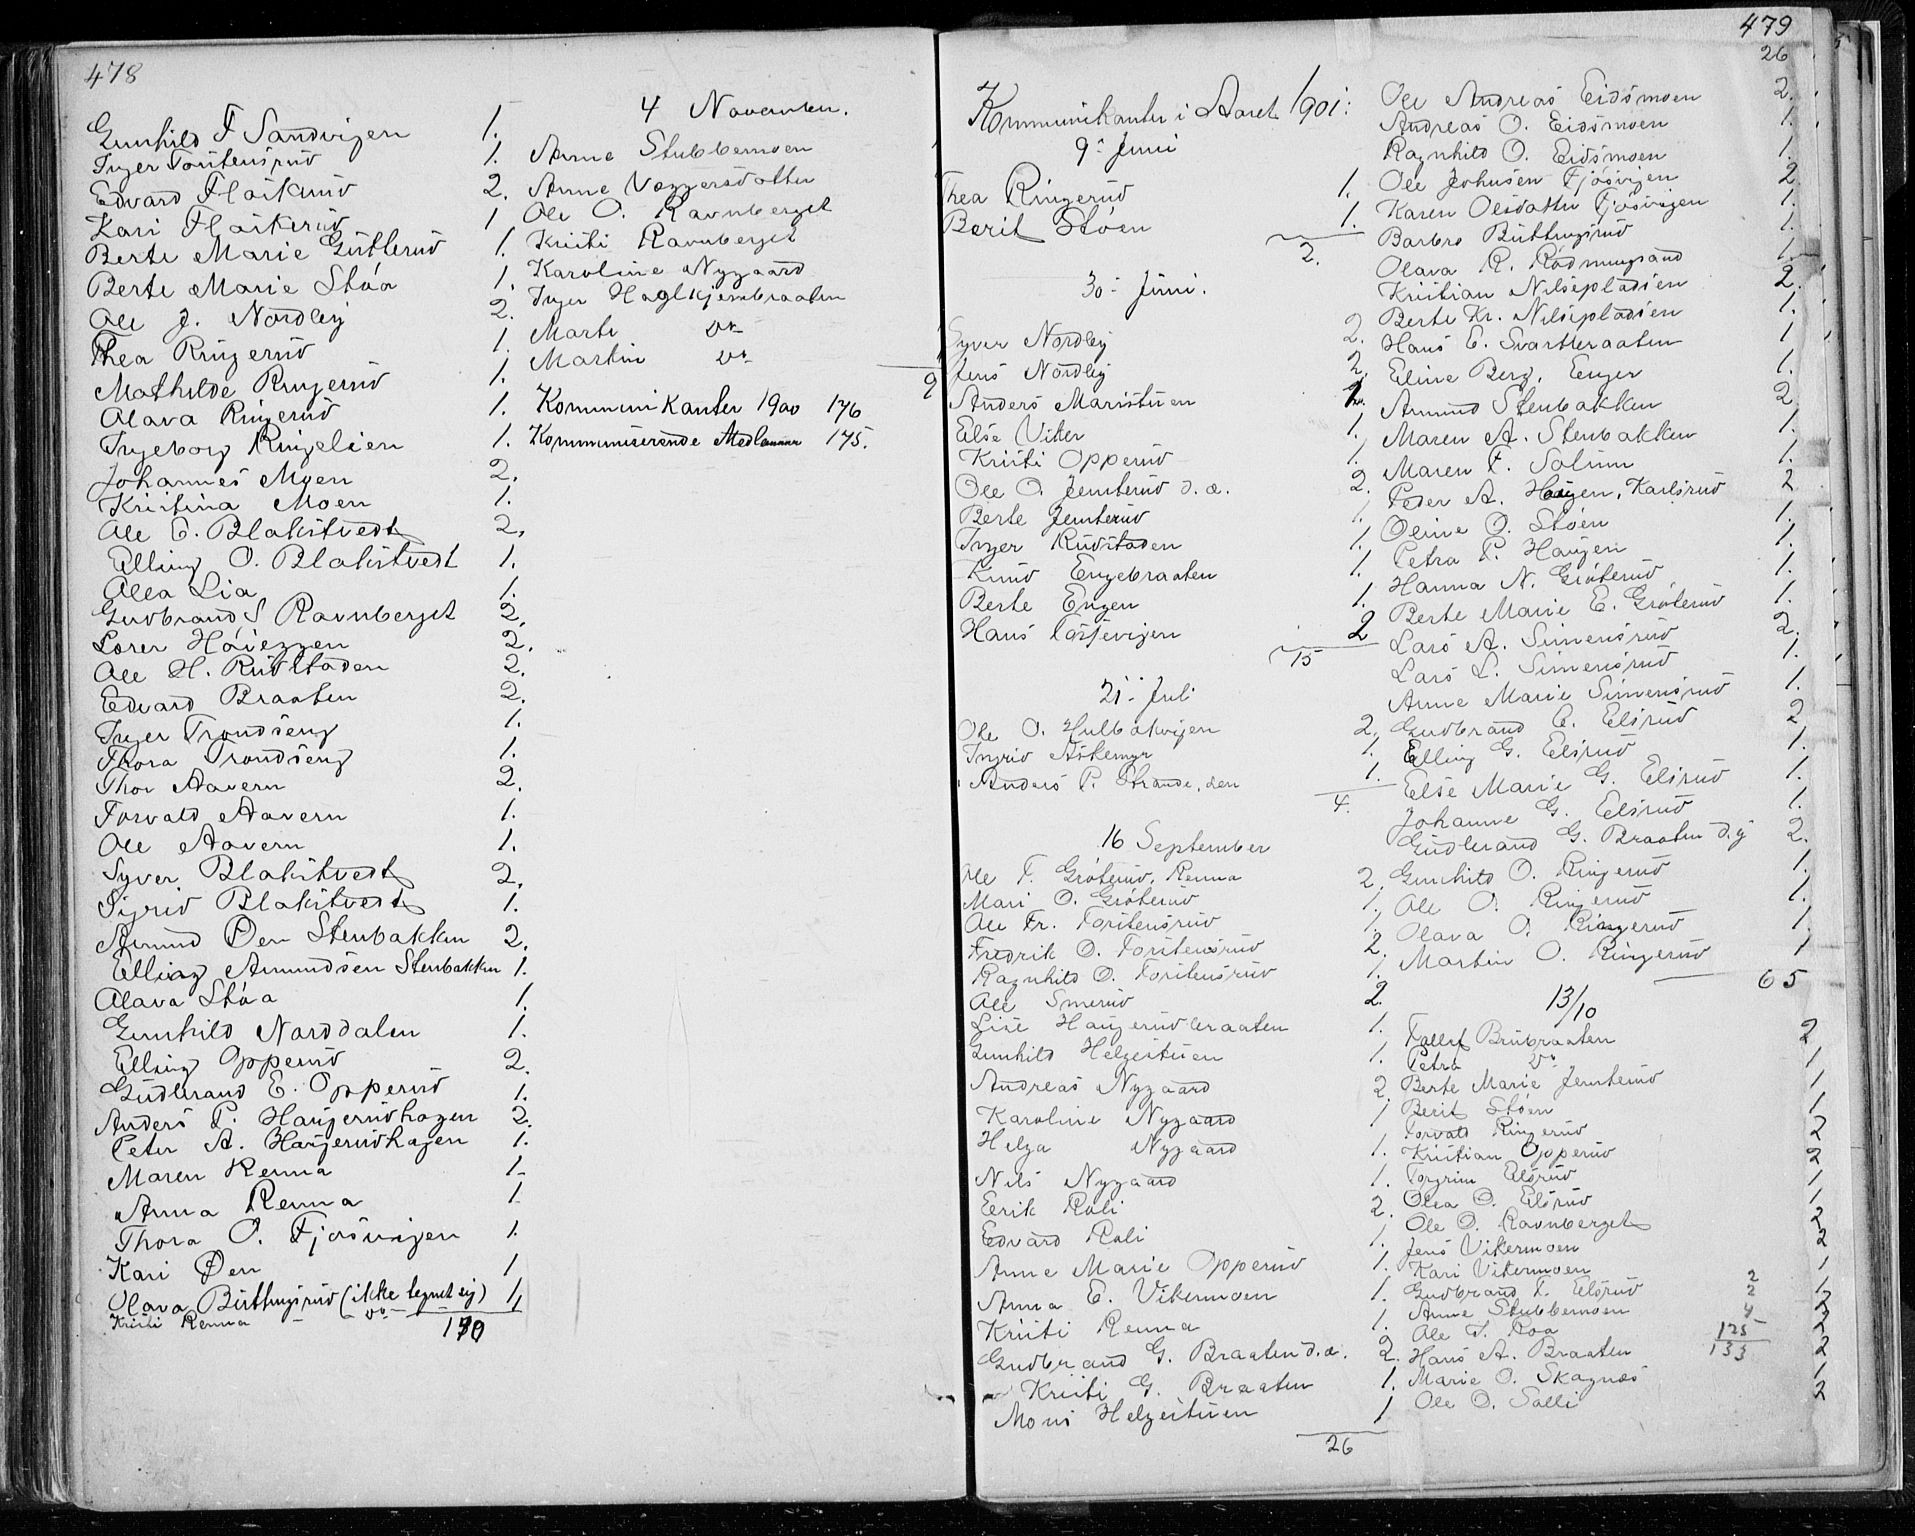 478
Gunhild F Sandvigen 1.
Inger Torstensrud 1.
Edvard Flaskerud 2.
Kari Flaskerud 1
Berte Marie Gutterud 1.
Berte Marie Støa 1.
Ole J. Nordby 2.
Thea Ringerud 1.
Mathilde Ringerud 1.
Olava Ringerud 1.
Ingeborg Ringelien 1.
Johannes Moen 2.
Kristina Moen 1.
Ole E. Blakstvedt 2.
Elling O. Blakstvedt 1.
Olea Lia 1.
Gudbrand S Ravnberget 2.
Lorer Høieggen 2.
Ole H. Rudstaden 2.
Edvard Braaten 2.
Inger Trondseng 1.
Thora Trondseng 1.
Thor Aavern 2.
Torvald Aavern 1.
Ole Aavern 1.
Syver Blakstvedt 2.
Sigrid Blakstvedt 1.
Amund Øen Stenbakken 2.
Elling Amundsen Stenbakken 1.
Olava Støa 1.
Gunhild Norddalen 1.
Elling Opperud 2.
Gudbrand E. Opperud 1.
Anders P. Haugerudhagen 2.
Peter A. Haugerudhagen 1.
Maren Renna 1.
Anna Renna 1
Thora O. Fjøsvigen 1.
Kari Øen 1
Olava Buttingsrud (ikke tegnet sig) 1
Kristi Renna - do - 1
170
4 November.
Anne Stubbemoen
Anne Vaggersdatter
Ole O. Ravnberget
Kristi Ravnberget
Karoline Nygaard
Inger Haglkjernbraaten
Marte do
Martin do
9
Kommunikanter 1900 176
Kommuniserende Medlemmer 175.
479
Kommunikanter i Aaret 1901:
9de Juni
Thea Ringerud 1.
Berit Støen 1.
2.
30- Juni.
Syver Nordby 2.
Jens Nordby 2.
Anders Maristuen 1.
Else Viker 1.
Kristi Opperud 1.
Ole O. Jemterud d. æ. 2.
Berte Jemterud 1.
Inger Rudstaden 1.
Knud Engebraaten 1.
Berte Engen 1.
Hans Tossevigen 2
15
21- Juli
Ole O. Hulbakvigen 2.
Ingrid Askemyr 1.
Anders P. Strande, den 1.
4.
16 September
Ole T. Grøterud, Renna 2.
Mari O. Grøterud 1.
Ole Fr. Torstensrud 1.
Fredrik O. Torstensrud 2.
Ragnhild O. Torstensrud 1.
Ole Smerud 2.
Lise Haugerudbraaten 1.
Gunhild Helgestuen 1.
Andreas Nygaard 2.
Karoline Nygaard 1
Helga Nygaard 1.
Nils Nygaard 1.
Eerik Roli 2.
Edvard Roli 1.
Anne Marie Opperud 1.
Anna E. Vikermoen 1.
Kristi Renna 1.
Gudbrand G. Braaten d. æ. 2.
Kristi G. Braaten 1.
Mons Helgestuen 1
26
26
Ole Andreas Eidsmoen 2.
Andreas O. Eidsmoen 1.
Ragnhild O. Eidsmoen 1.
Ole Johnsen Fjøsvigen 2.
Karen Olsdatter Fjøsvigen 1.
Barbro Buttingsrud 1.
Olava R. Rødmyrsand 1.
Kristian Nilsepladsen 2.
Berte Kr. Nilsepladsen 1.
Hans E. Svartbraaten 1
Eline Berg, Enger 1.
Amund Stenbakken 2
Maren A. Stenbakken 1.
Maren F. Solum 1.
Peder A. Haugen, Karlsrud 2
Oline O. Støen 1.
Petra P. Haugen 1.
Hanna N. Grøterud 1.
Berte Marie E. Grøterud 1.
Lars A. Simensrud 2.
Lars L. Simensrud 1.
Anne Marie Simensrud 1.
Gudbrand E. Elsrud 2
Elling G. Elsrud 1.
Else Marie G. Elsrud 1.
Johanne G. Elsrud 1.
Gudbrand G. Braaten d. y 2.
Gunhild O. Ringerud 1.
Ole O. Ringerud 1.
Olava O. Ringerud 1.
Martin O. Ringerud 1
65
13/10
Tollef Brubraaten 2
Petra do 1
Berte Marie Jemterud 1
Berit Støen 1
Torvald Ringerud 2
Kristian Opperud 2
Torgrim Elsrud 1
Olea O. Elsrud 1
Ole O. Ravnberget 2
Jens Vikermoen 2
Kari Vikermoen 1
Gudbrand T. Elsrud
Anne Stubbemoen
Ole T. Roa
Hans A. Braaten 2
Marie O. Skagnæs 1
Ole O. Salli 2
2
2
4
125
133